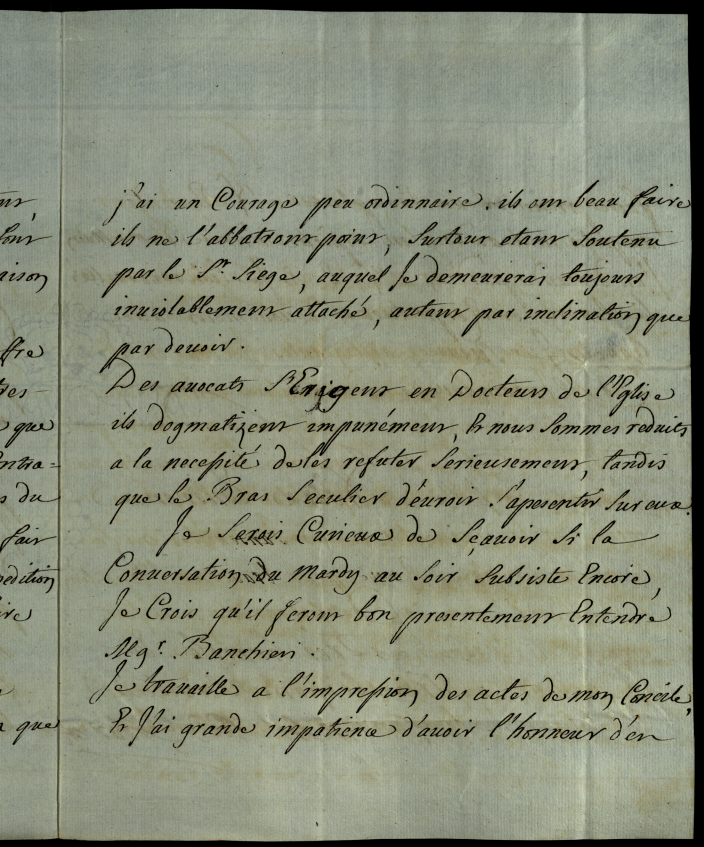 j'ai un Courage peu ordinnaire. ils ont beau faire
ils ne l'abbatront point, Surtout etant Soutenu
par le St. Siége, auquel Je demeurerai toujours
inviolablement attaché, autant par inclination que
par devoir.
Des avocats S'Erigent en Docteurs de l'Eglise
ils dogmatizent impunément, Et nous Sommes reduits
a la necessité de les refuter Serieusement, tandis
que le Bras Seculier devroit S'apesentir Sur eux.
Je Serois Curieux de Sçavoir Si la
Conversation du Mardy au Soir Subsiste Encore,
Je Crois qu'il feront bon presentement Entendre
Mgr. Banchieri.
Je travaille a l'impression des actes de mon Concile,
Et J'ai grande impatience d'avoir l'honneur d'en
aison
ffre
tres-
que
ntra=
s du
fair
pedition
ire
que